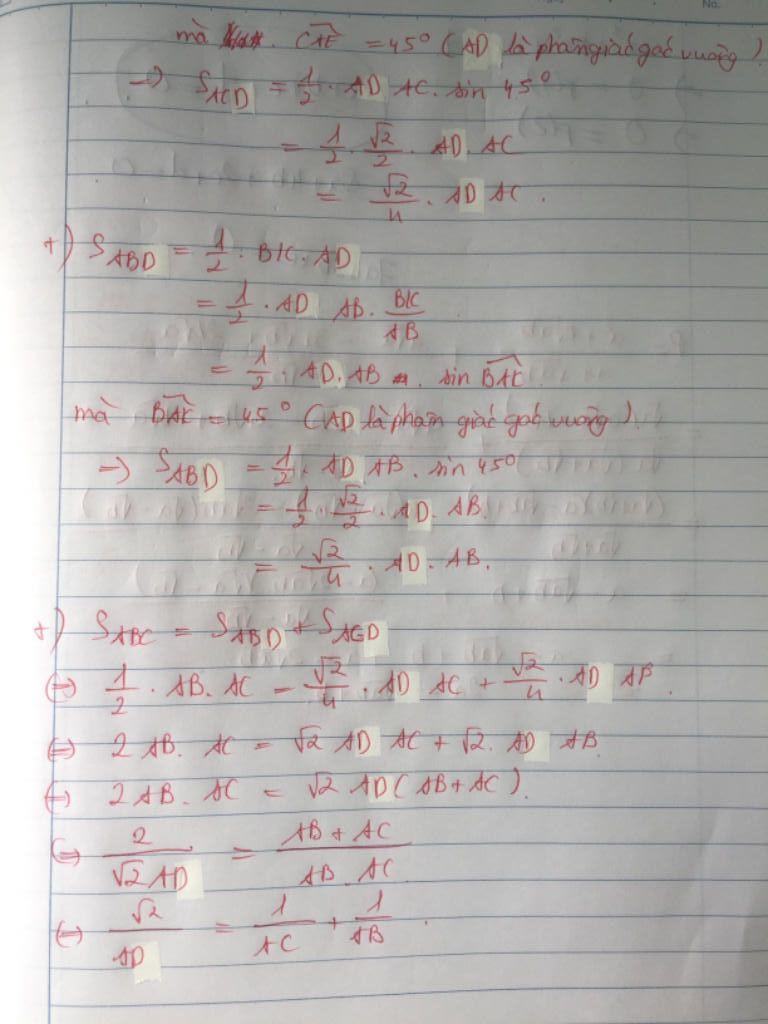 No.
mà CAE = 45° (AD là phân giác góc vuông)
→ S_ACD = 1/2 · AD AC · sin 45°
= 1/2 · √2/2 · AD · AC
= √2/4 · AD AC.
+) S_ABD = 1/2 · BK · AD
= 1/2 · AD AB · BK/AB
= 1/2 · AD. AB . sin BAK
mà BAK = 45° (AD là phân giác góc vuông).
→ S_ABD = 1/2 · AD AB . sin 45°
= 1/2 · √2/2 · AD. AB.
= √2/4 · AD. AB.
+) S_ABC = S_ABD + S_ACD
⇔ 1/2 · AB. AC = √2/4 · AD AC + √2/4 · AD AB.
⇔ 2 AB. AC = √2 AD AC + √2. AD AB
⇔ 2AB. AC = √2 AD(AB+AC).
⇔ 2/(√2 AD) = (AB + AC)/(AB. AC)
⇔ √2/AD = 1/AC + 1/AB.